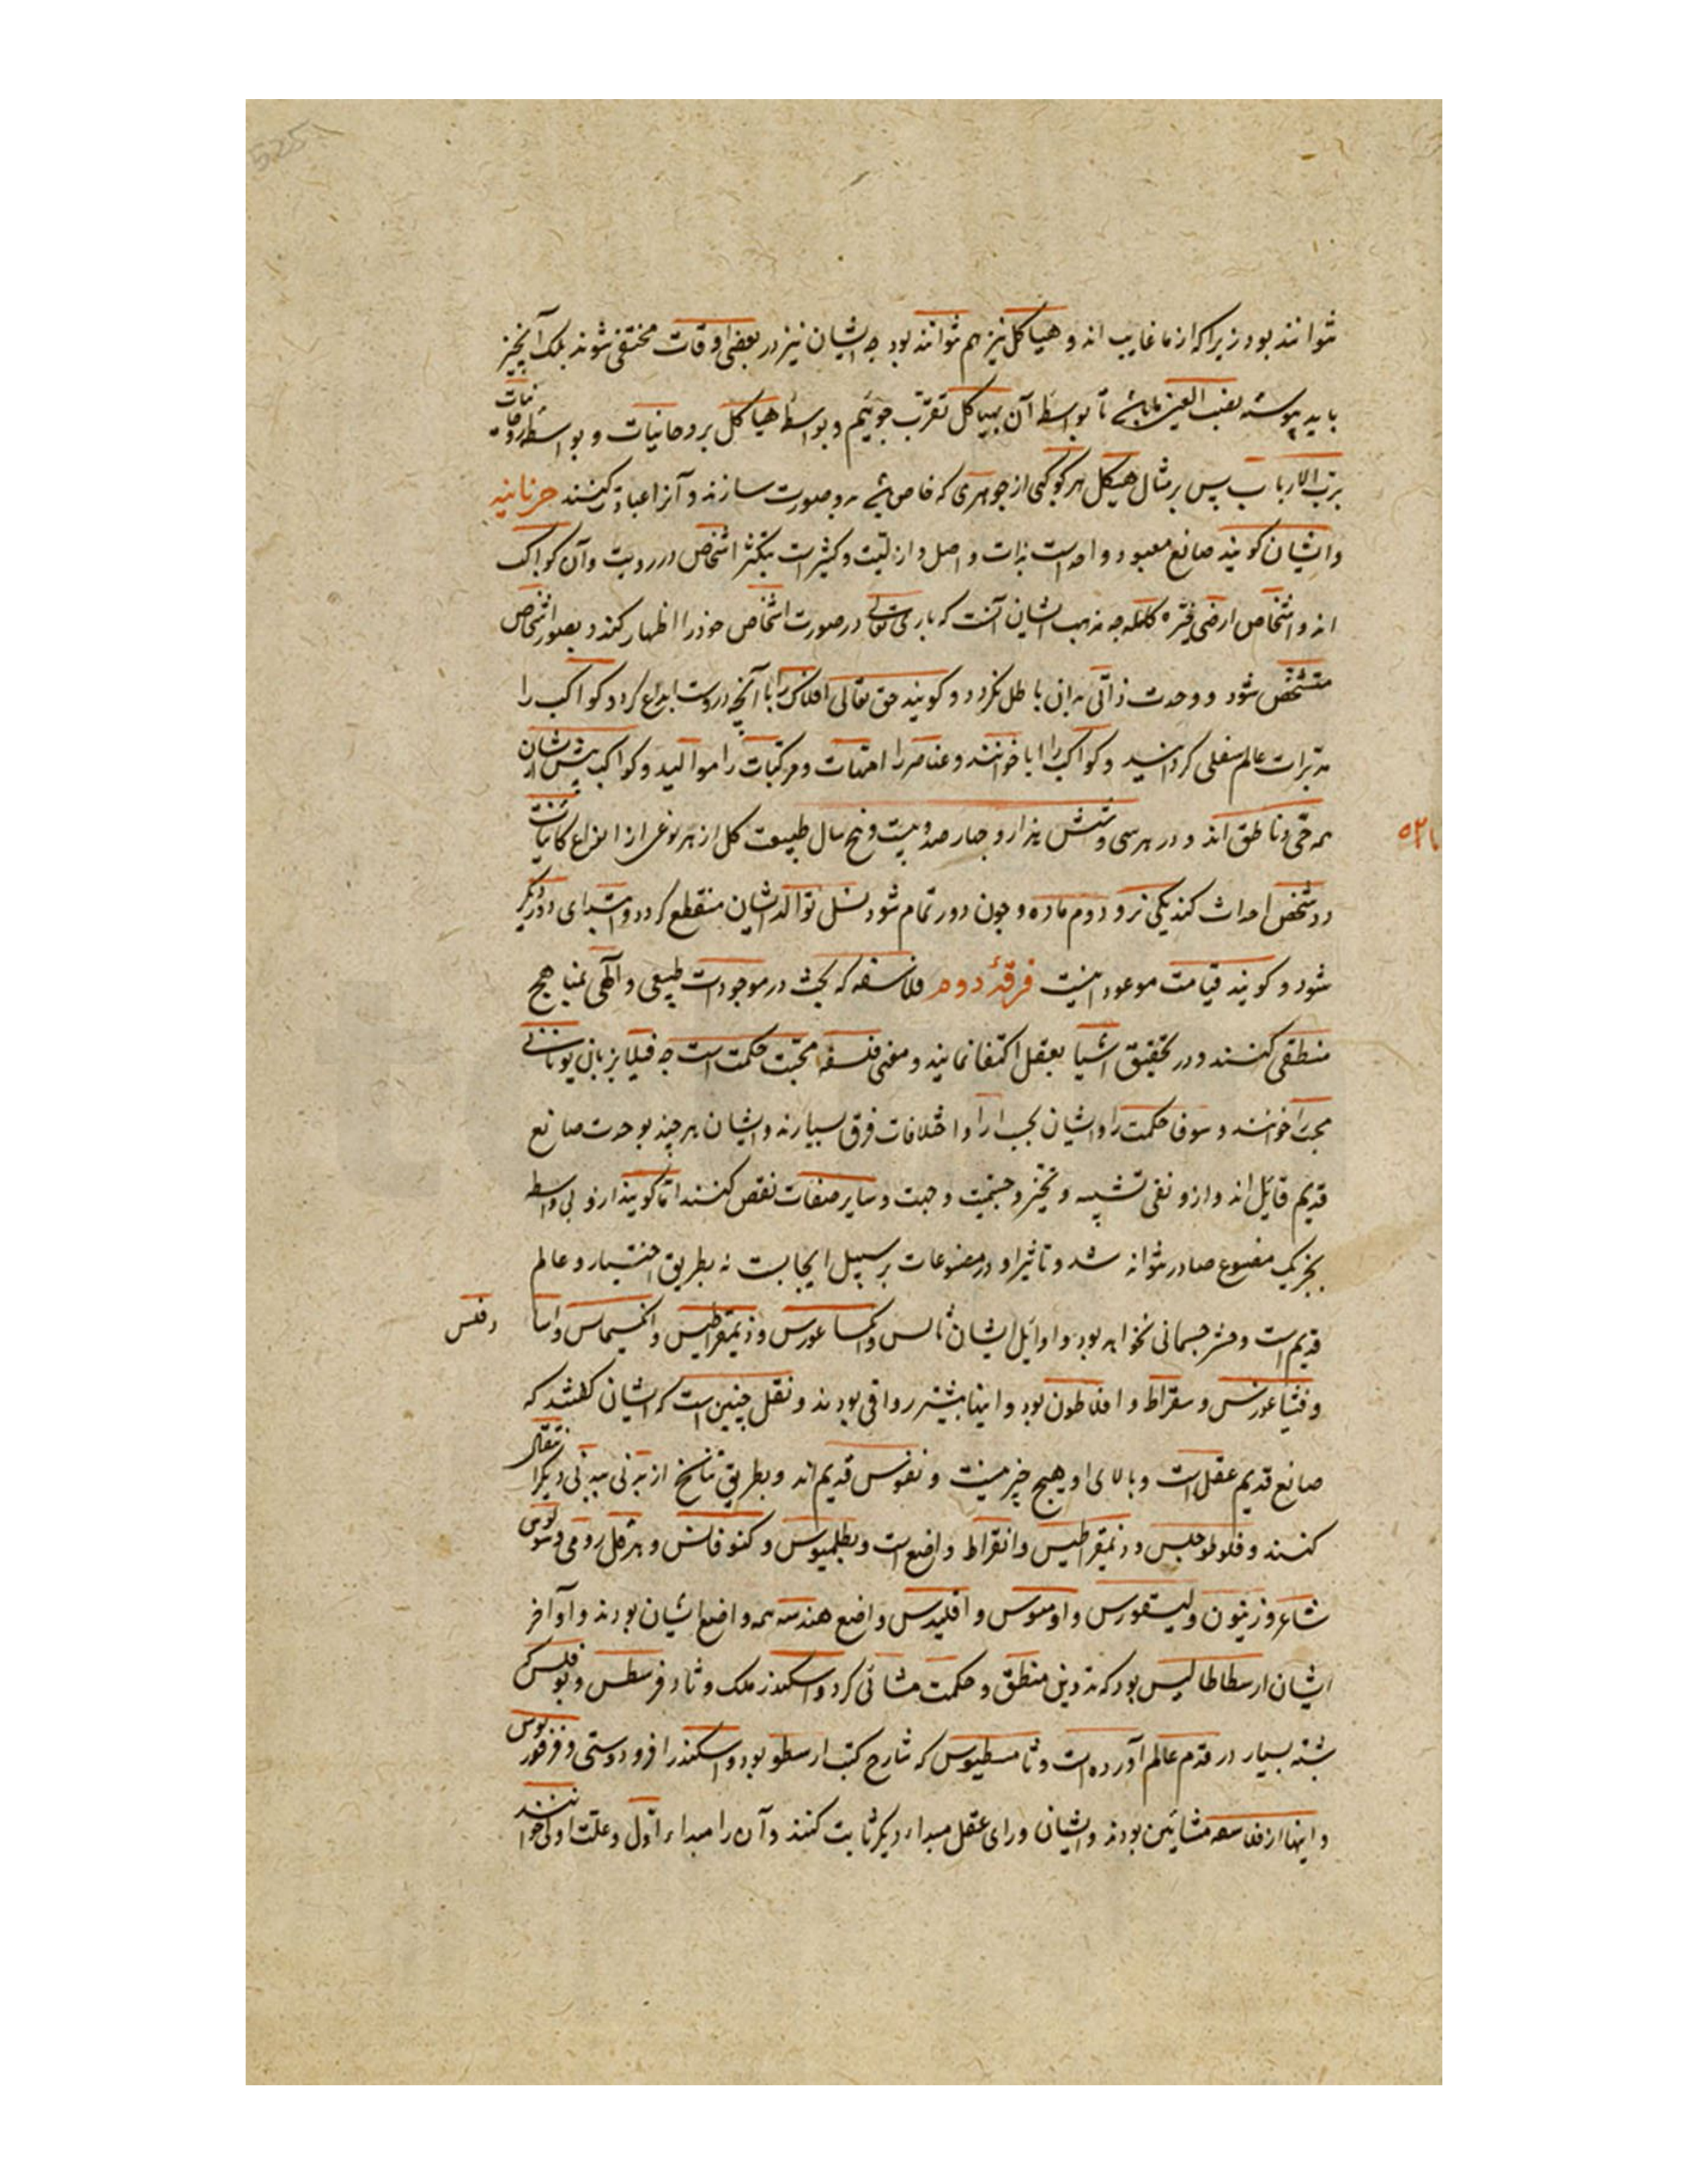 نتوانند بود زیرا که از ما غایب اند و هیاکل نیز هم نتوانند بود چه ایشان نیز در بعضی اوقات مختفی شوند بلک آن چیز
باید پیوسته نصب العین ما باشد تا بواسطه آن بهیاکل تقرب جوئیم و بواسطه هیاکل بروحانیات و بواسطه روحانیات
برب الارباب پس بر مثال هیکل هر کوکبی از جوهری که خاص باشد بدو صورت سازند و آنرا عبادت کنند حرنانیه
و ایشان کویند صانع معبود واحد است بذات و اصل و ازلیت و کثیر است بتکثر اشخاص در رویت و آن کواکب
اند و اشخاص ارضی چه مذهب ایشان آنست که باری تعالی در صورت اشخاص خود را اظهار کند و بصور اشخاص
متشخص شود و وحدت ذاتی بدان باطل نکردد و کویند حق تعالی افلاک را با آنچه دروست ابداع کرد و کواکب را
مدبرات عالم سفلی کردانید و کواکب را ابا خوانند و عناصر را امهات و مرکبات را موالید و کواکب پیش ایشان
همه حی و ناطق اند و در هر سی و شش هزار و چهار صد و بیست و پنج سال طبیعت کل از هر نوعی از انواع کاینات
دو شخص احداث کند یکی نر و دوم ماده و چون دور تمام شود نسل و توالد ایشان منقطع کردد و ابتدای دور دیکر
شود و کویند قیامت موعود اینست فرقهٔ دوم فلاسفه که بحث در موجودات طبیعی و الهی بمناهج
منطقی کنند و در تحقیق اشیا بعقل اکتفا نمایند و معنی فلسفه محبت حکمت است چه فیلا بزبان یونانی
محب را خوانند و سوفا حکمت را و ایشان بحسب ارا و اختلافات فرق بسیارند و ایشان هر چند بوحدت صانع
قدیم قایل اند و ازو نفی تشبیه و تحیز و جسمیت و جهت و سایر صفات نقص کنند اما کویند ازو بی واسطه
بجز یک مصنوع صادر نتواند شد و تاثیر او در مصنوعات بر سبیل ایجابست نه بطریق اختیار و عالم
قدیم است و حشر جسمانی نخواهد بود و اوایل ایشان ثالس و انکساغورس و ذیمقراطیس و انکسیماس و انبا
دقلس
و فثاغورس و سقراط و افلاطون بود و اینها بیشتر رواقی بودند و نقل چنین است که ایشان کفتند که
صانع قدیم عقل است و بالای او هیچ چیز نیست و نفوس قدیم اند و بطریق تناسخ از بدنی ببدنی دیکر انتقال
کنند و فلوطرخیس و ذیمقراطیس و انقراط واضع است و بطلمیوس و کنوفانس و هرقل رومی و
شاعر و زینون و و و اقلیدس واضع هندسه همه واضع ایشان بودند و اواخر
ایشان ارسطاطالیس بود که تدوین منطق و حکمت مشائی کرد و اسکندر ملک و ثاوفرسطس و برقلس که
شبه بسیار در قدم عالم آورده است و ثامسطیوس که شارح کتب ارسطو بود و اسکندر افرودوسی و فرفوریوس
و اینها از فلاسفه مشائین بودند و ایشان ورای عقل مبداء دیکر ثابت کنند و آن را مبداء اول و علت اولی خوانند